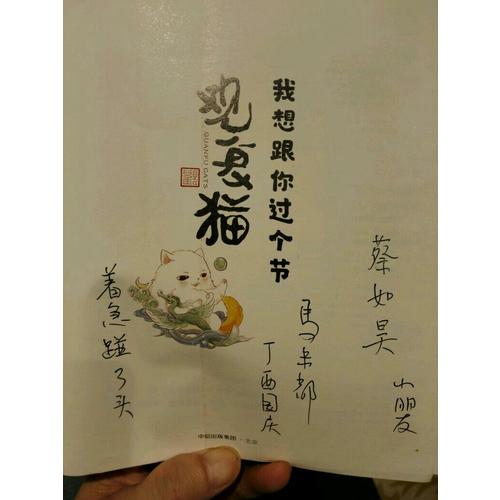 我想跟你过个节
观复猫
GUANFU CATS
蔡如昊
小朋友
马未都
丁酉国庆
着急了头
中信出版集团·北京